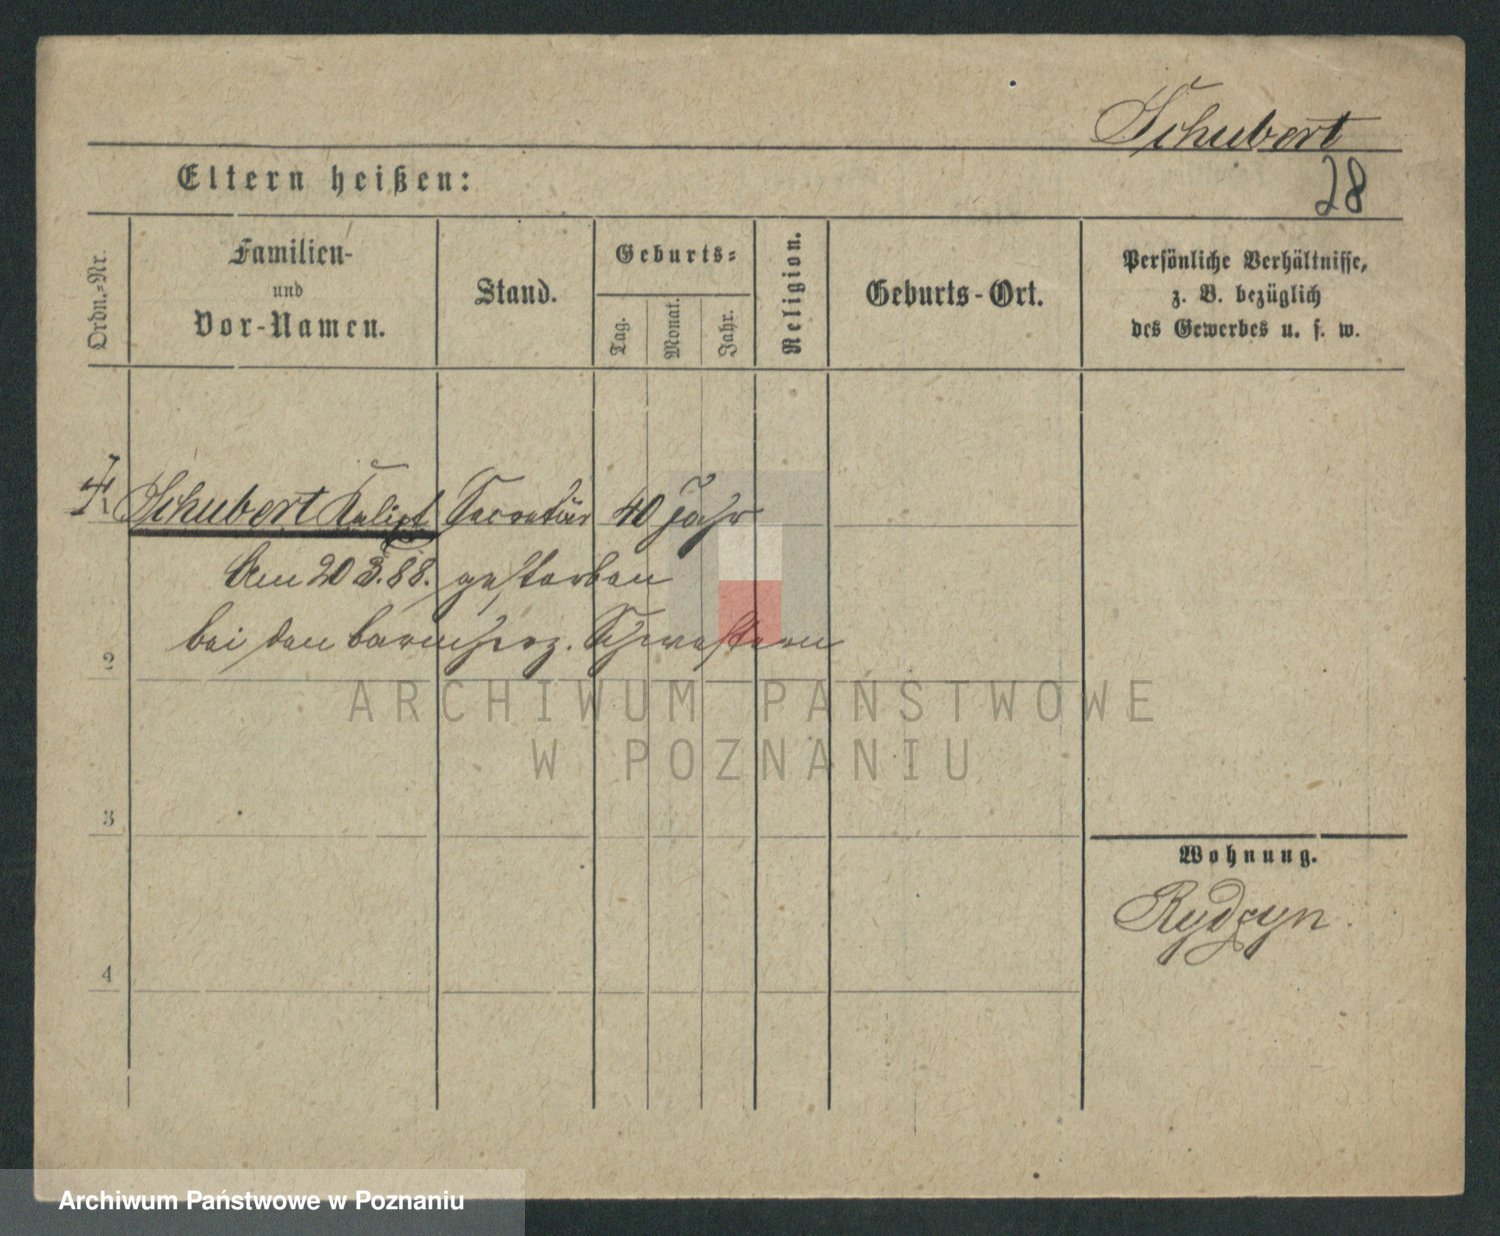 Schubert
28
Eltern heißen:
Ordn.-Nr.
Familien-
und
Vor-Namen.
Stand.
Geburts-
Tag.
Monat.
Jahr.
Religion.
Geburts-Ort.
Persönliche Verhältnisse,
z. B. bezüglich
des Gewerbes u. s. w.
Schubert Kalixt Secretär 40 Jahr
Am 20 3. 88. gestorben
bei den barmherz. Schwestern
2
3
4
Wohnung.
Rydzyn.
ARCHIWUM PAŃSTWOWE
W POZNANIU
Archiwum Państwowe w Poznaniu